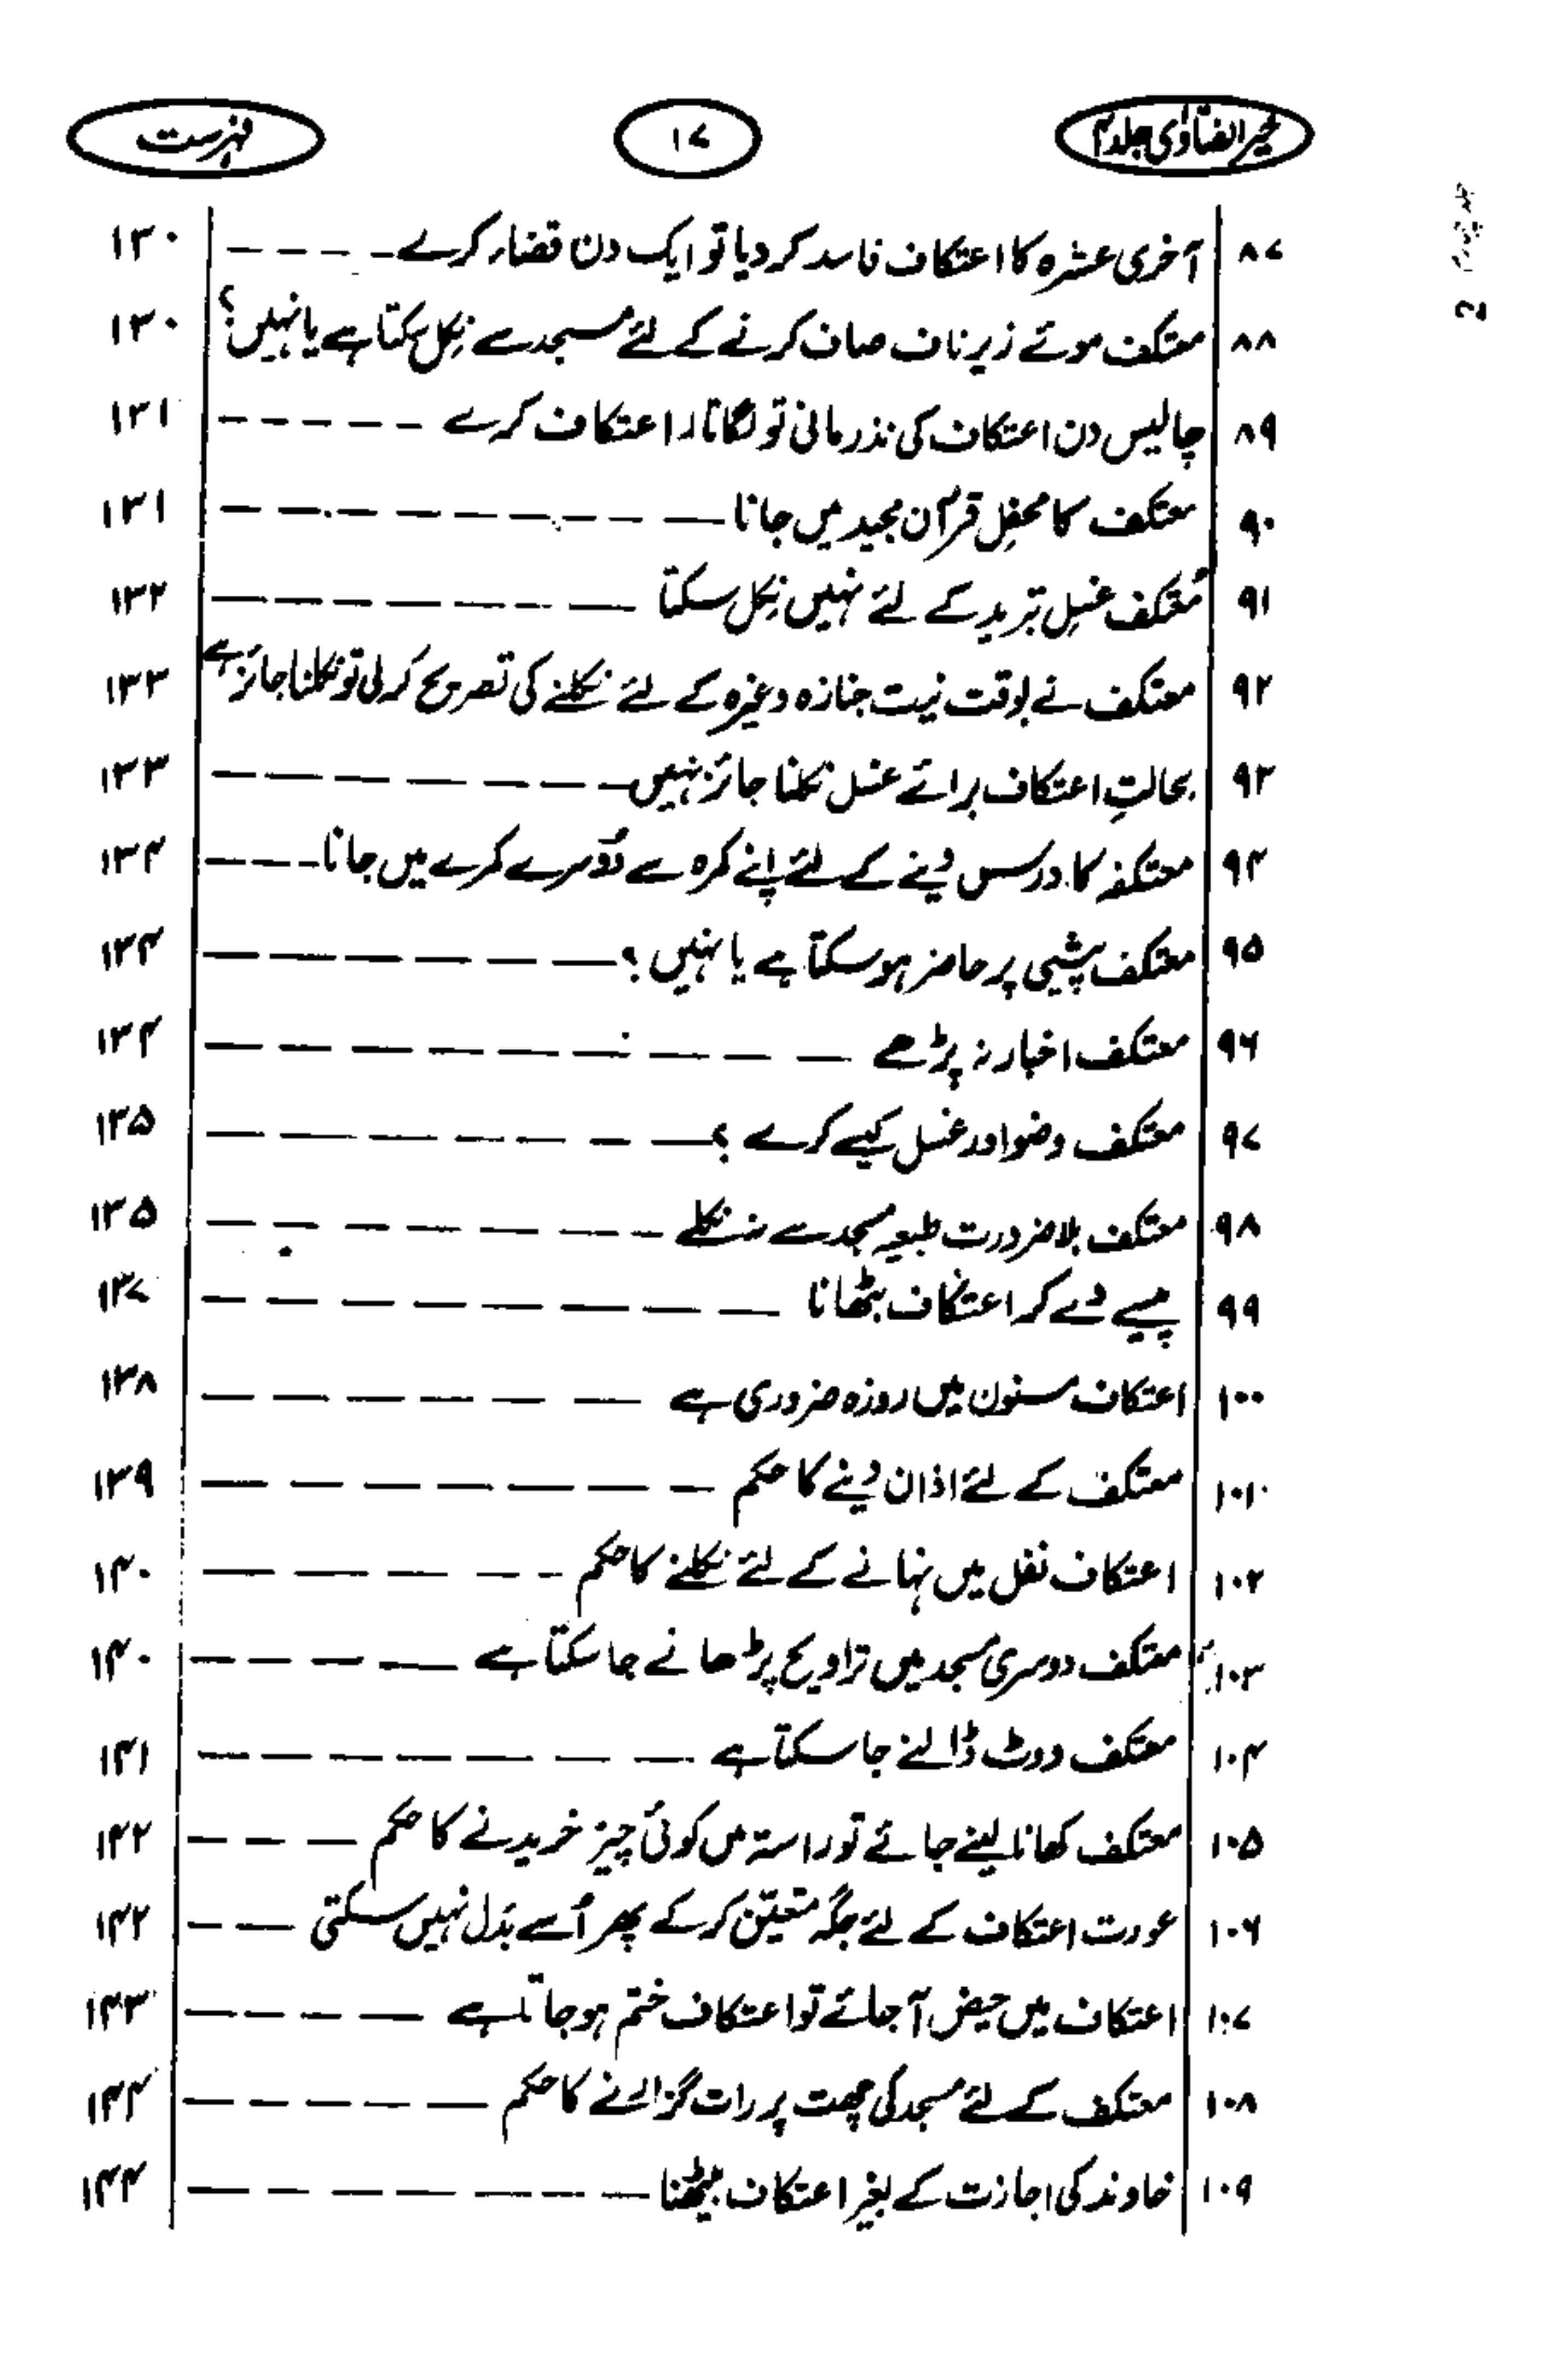 خیر الفتاویٰ جلد ۴ ۱۷ فہرست
۸۷ آخری عشرہ کا اعتکاف فاسد کر دیا تو ایک دن قضاء کرے ۱۳۰
۸۸ معتکف موئے زیر ناف صاف کرنے کے لئے مسجد سے نِکل سکتا ہے یا نہیں؟ ۱۳۰
۸۹ چالیس دن اعتکاف کی نذر مانی تو لگاتار اعتکاف کرے ۱۳۱
۹۰ معتکف کا محفلِ قرآن مجید میں جانا ۱۳۱
۹۱ مُعتکف غسلِ تبرید کے لئے نہیں نِکل سکتا ۱۳۲
۹۲ معتکف نے بوقت نیت جنازہ وغیرہ کے لئے نکلنے کی تصریح کر لی تو نکلنا جائز ہے ۱۳۳
۹۳ بحالتِ اعتکاف برائے غسل نکلنا جائز نہیں ۱۳۳
۹۴ معتکفہ کا درس دینے کے لئے اپنے کمرہ سے دُوسرے کمرے میں جانا ۱۳۴
۹۵ معتکف پیشی پر حاضر ہو سکتا ہے یا نہیں؟ ۱۳۴
۹۶ معتکف اخبار نہ پڑھے ۱۳۴
۹۷ معتکف وضو اور غسل کیسے کرے؟ ۱۳۵
۹۸ معتکف بلا ضرورت طبعیہ مسجد سے نہ نکلے ۱۳۵
۹۹ پیسے دے کر اعتکاف بٹھانا ۱۳۷
۱۰۰ اعتکاف مسنون میں روزہ ضروری ہے ۱۳۸
۱۰۱ معتکف کے لئے اذان دینے کا حکم ۱۳۹
۱۰۲ اعتکاف نفل میں نہانے کے لئے نکلنے کا حکم ۱۴۰
۱۰۳ معتکف دوسری مسجد میں تراویح پڑھانے جا سکتا ہے ۱۴۰
۱۰۴ معتکف ووٹ ڈالنے جا سکتا ہے ۱۴۱
۱۰۵ معتکف کھانا لینے جائے تو راستہ میں کوئی چیز خریدنے کا حکم ۱۴۲
۱۰۶ عورت اعتکاف کے لئے جگہ متعیّن کر کے پھر اُسے بدَل نہیں سکتی ۱۴۲
۱۰۷ اعتکاف میں حیض آ جائے تو اعتکاف ختم ہو جاتا ہے ۱۴۳
۱۰۸ معتکف کے لئے مسجد کی چھت پر رات گزارنے کا حکم ۱۴۴
۱۰۹ خاوند کی اجازت کے بغیر اعتکاف بیٹھنا ۱۴۴